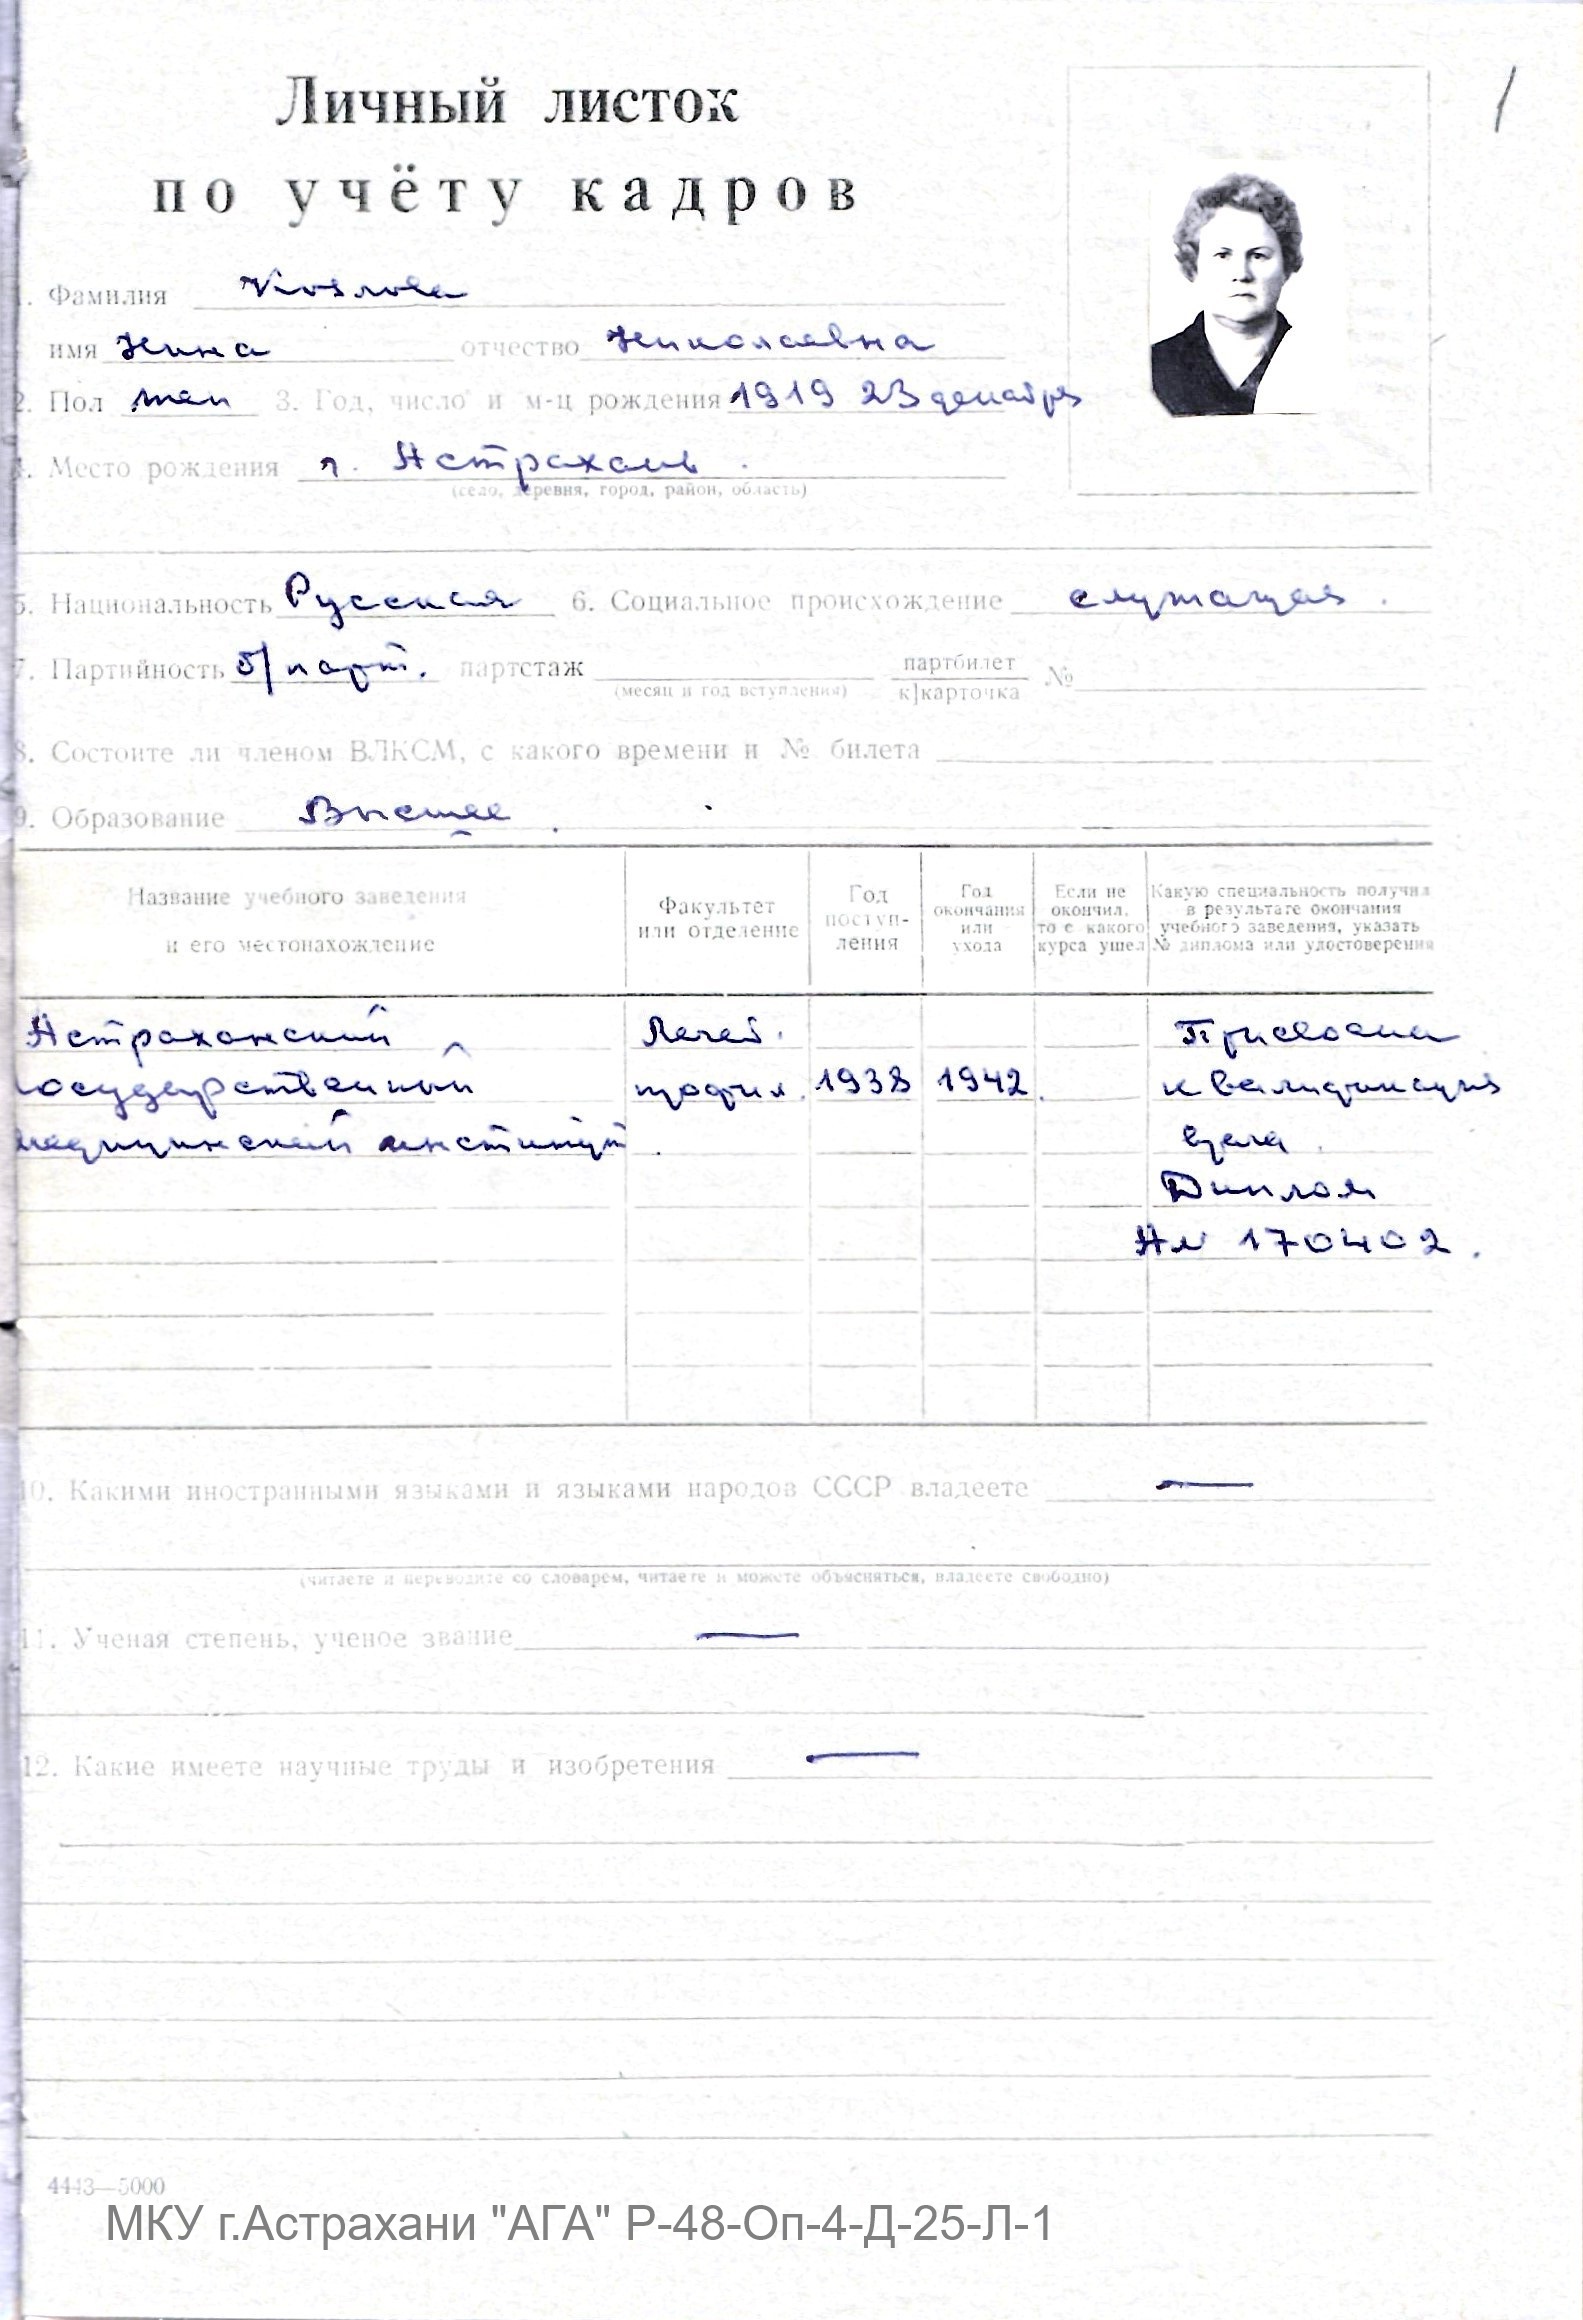 1
Личный листок
по учёту кадров
1. Фамилия Козлова
имя Нина отчество Николаевна
2. Пол жен 3. Год, число и м-ц рождения 1919 23 декабря
4. Место рождения г. Астрахань.
(село, деревня, город, район, область)
5. Национальность Русская 6. Социальное происхождение служащая.
7. Партийность б/парт. партстаж партбилет №
(месяц и год вступления) к]карточка
8. Состоите ли членом ВЛКСМ, с какого времени и № билета
9. Образование Высшее.
Название учебного заведения и его местонахождение
Факультет или отделение
Год поступ-ления
Год окончания или ухода
Если не окончил, то с какого курса ушел
Какую специальность получил в результате окончания учебного заведения, указать № диплома или удостоверения
Астраханский Лечеб. Присвоена
государственный профил. 1938 1942. квалификация
медицинский институт. врача.
Диплом
170402.
10. Какими иностранными языками и языками народов СССР владеете —
(читаете и переводите со словарем, читаете и можете объясняться, владеете свободно)
11. Ученая степень, ученое звание —
12. Какие имеете научные труды и изобретения —
4443—5000
МКУ г.Астрахани "АГА" Р-48-Оп-4-Д-25-Л-1